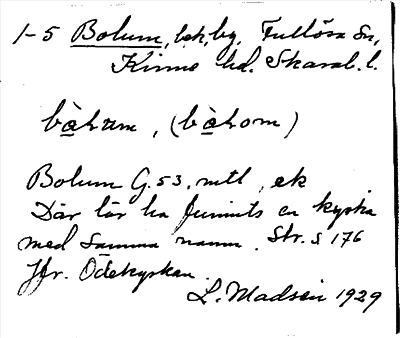 1-5 Bolum, bek, by, Fullösa Sn,
Kinne hd. Skarab. l.
bo̱lum, (bo̱lom)
Bolum G. 53, mtl, ek
Där lär ha funnits en kyrka
med samma namn. Str. s 176
Jfr. Ödekyrkan.
L. Madsén 1929